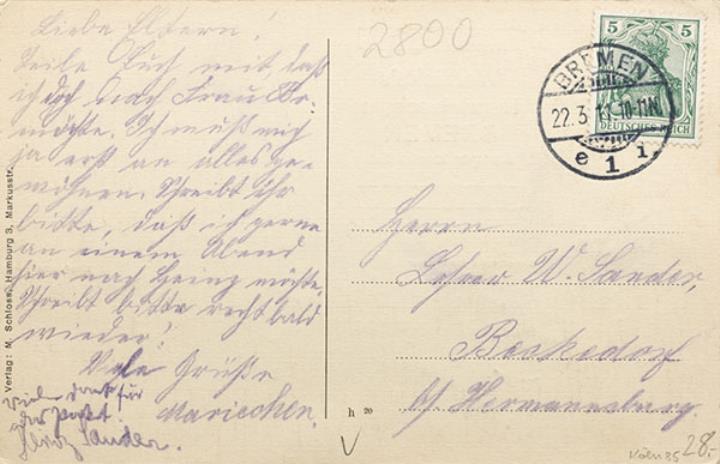 Liebe Eltern!
Teile Euch mit, daß
ich doch nach Frau
möchte. Ich muß mich
ja erst an alles ge-
wöhnen. Schreibt ihr
bitte, daß ich gerne
an einem Abend
hier nach Heinz möchte.
Schreibt bitte recht bald
wieder!
Viele Grüße
Mariechen.
Vielen Dank für
Post.
Heinz Sander.
Verlag: M. Schloss, Hamburg 3, Markusstr.
h 20
2800
5 5
DEUTSCHES REICH
BREMEN
22.3. 10-11N.
e 1 i
Herrn
Lehrer W. Sander,
Beckedorf
b/ Hermannsburg.
Köln 85 28.-